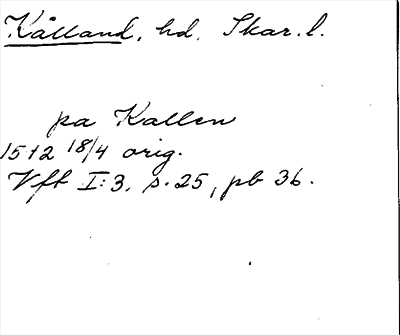 Kålland, hd, Skar. l.
pa Kallen
1512 18/4 orig.
Vft I:3, s. 25, pb 36.